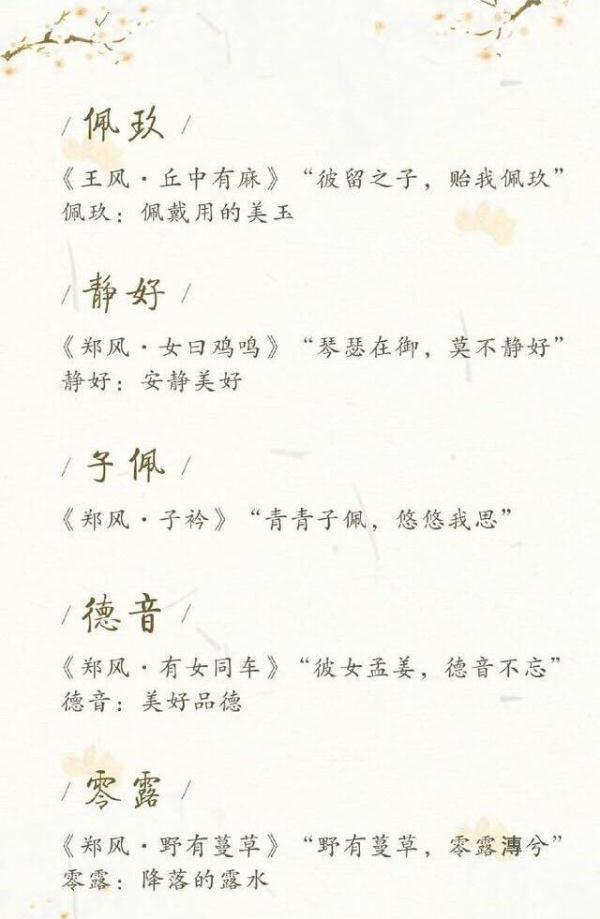 / 佩玖 /
《王风·丘中有麻》“彼留之子，贻我佩玖”
佩玖：佩戴用的美玉
/ 静好 /
《郑风·女曰鸡鸣》“琴瑟在御，莫不静好”
静好：安静美好
/ 子佩 /
《郑风·子衿》“青青子佩，悠悠我思”
/ 德音 /
《郑风·有女同车》“彼女孟姜，德音不忘”
德音：美好品德
/ 零露 /
《郑风·野有蔓草》“野有蔓草，零露漙兮”
零露：降落的露水